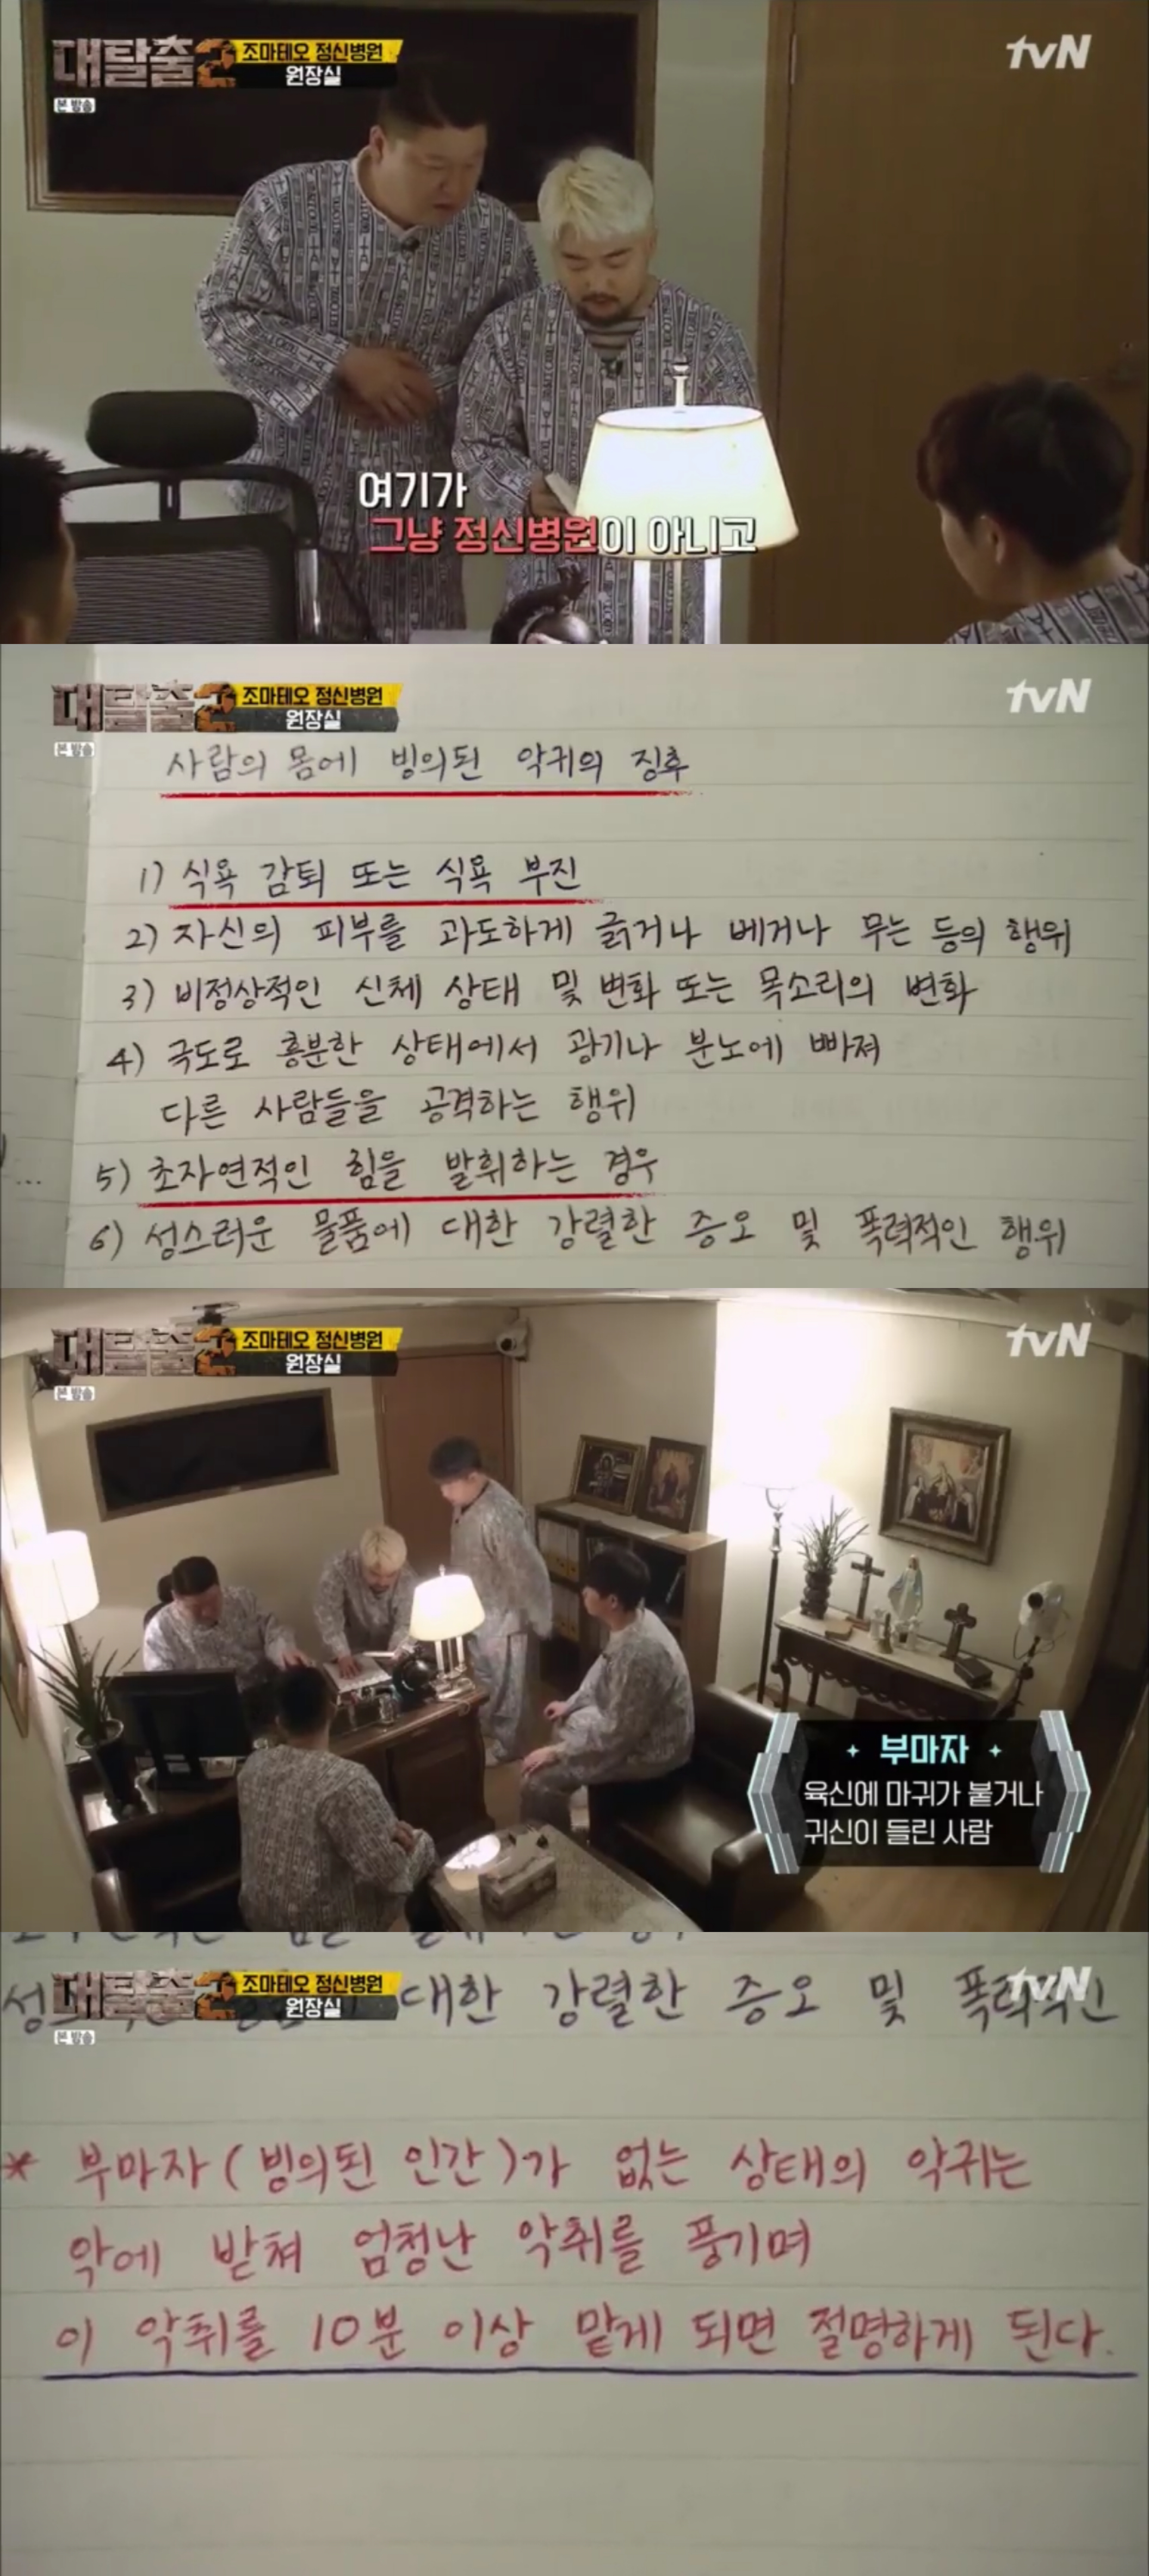 대탈출2
조마테오 정신병원
원장실
본 방송
tvN
여기가
그냥 정신병원이 아니고
대탈출2
조마테오 정신병원
원장실
본 방송
tvN
사람의 몸에 빙의된 악귀의 징후
1) 식욕 감퇴 또는 식욕 부진
2) 자신의 피부를 과도하게 긁거나 베거나 무는 등의 행위
3) 비정상적인 신체 상태 및 변화 또는 목소리의 변화
4) 극도로 흥분한 상태에서 광기나 분노에 빠져
다른 사람들을 공격하는 행위
5) 초자연적인 힘을 발휘하는 경우
6) 성스러운 물품에 대한 강렬한 증오 및 폭력적인 행위
대탈출2
조마테오 정신병원
원장실
본 방송
tvN
부마자
육신에 마귀가 붙거나
귀신이 들린 사람
대탈출2
조마테오 정신병원
원장실
본 방송
tvN
대한 강렬한 증오 및 폭력적인
* 부마자(빙의된 인간)가 없는 상태의 악귀는
악에 받쳐 엄청난 악취를 풍기며
이 악취를 10분 이상 맡게 되면 절명하게 된다.